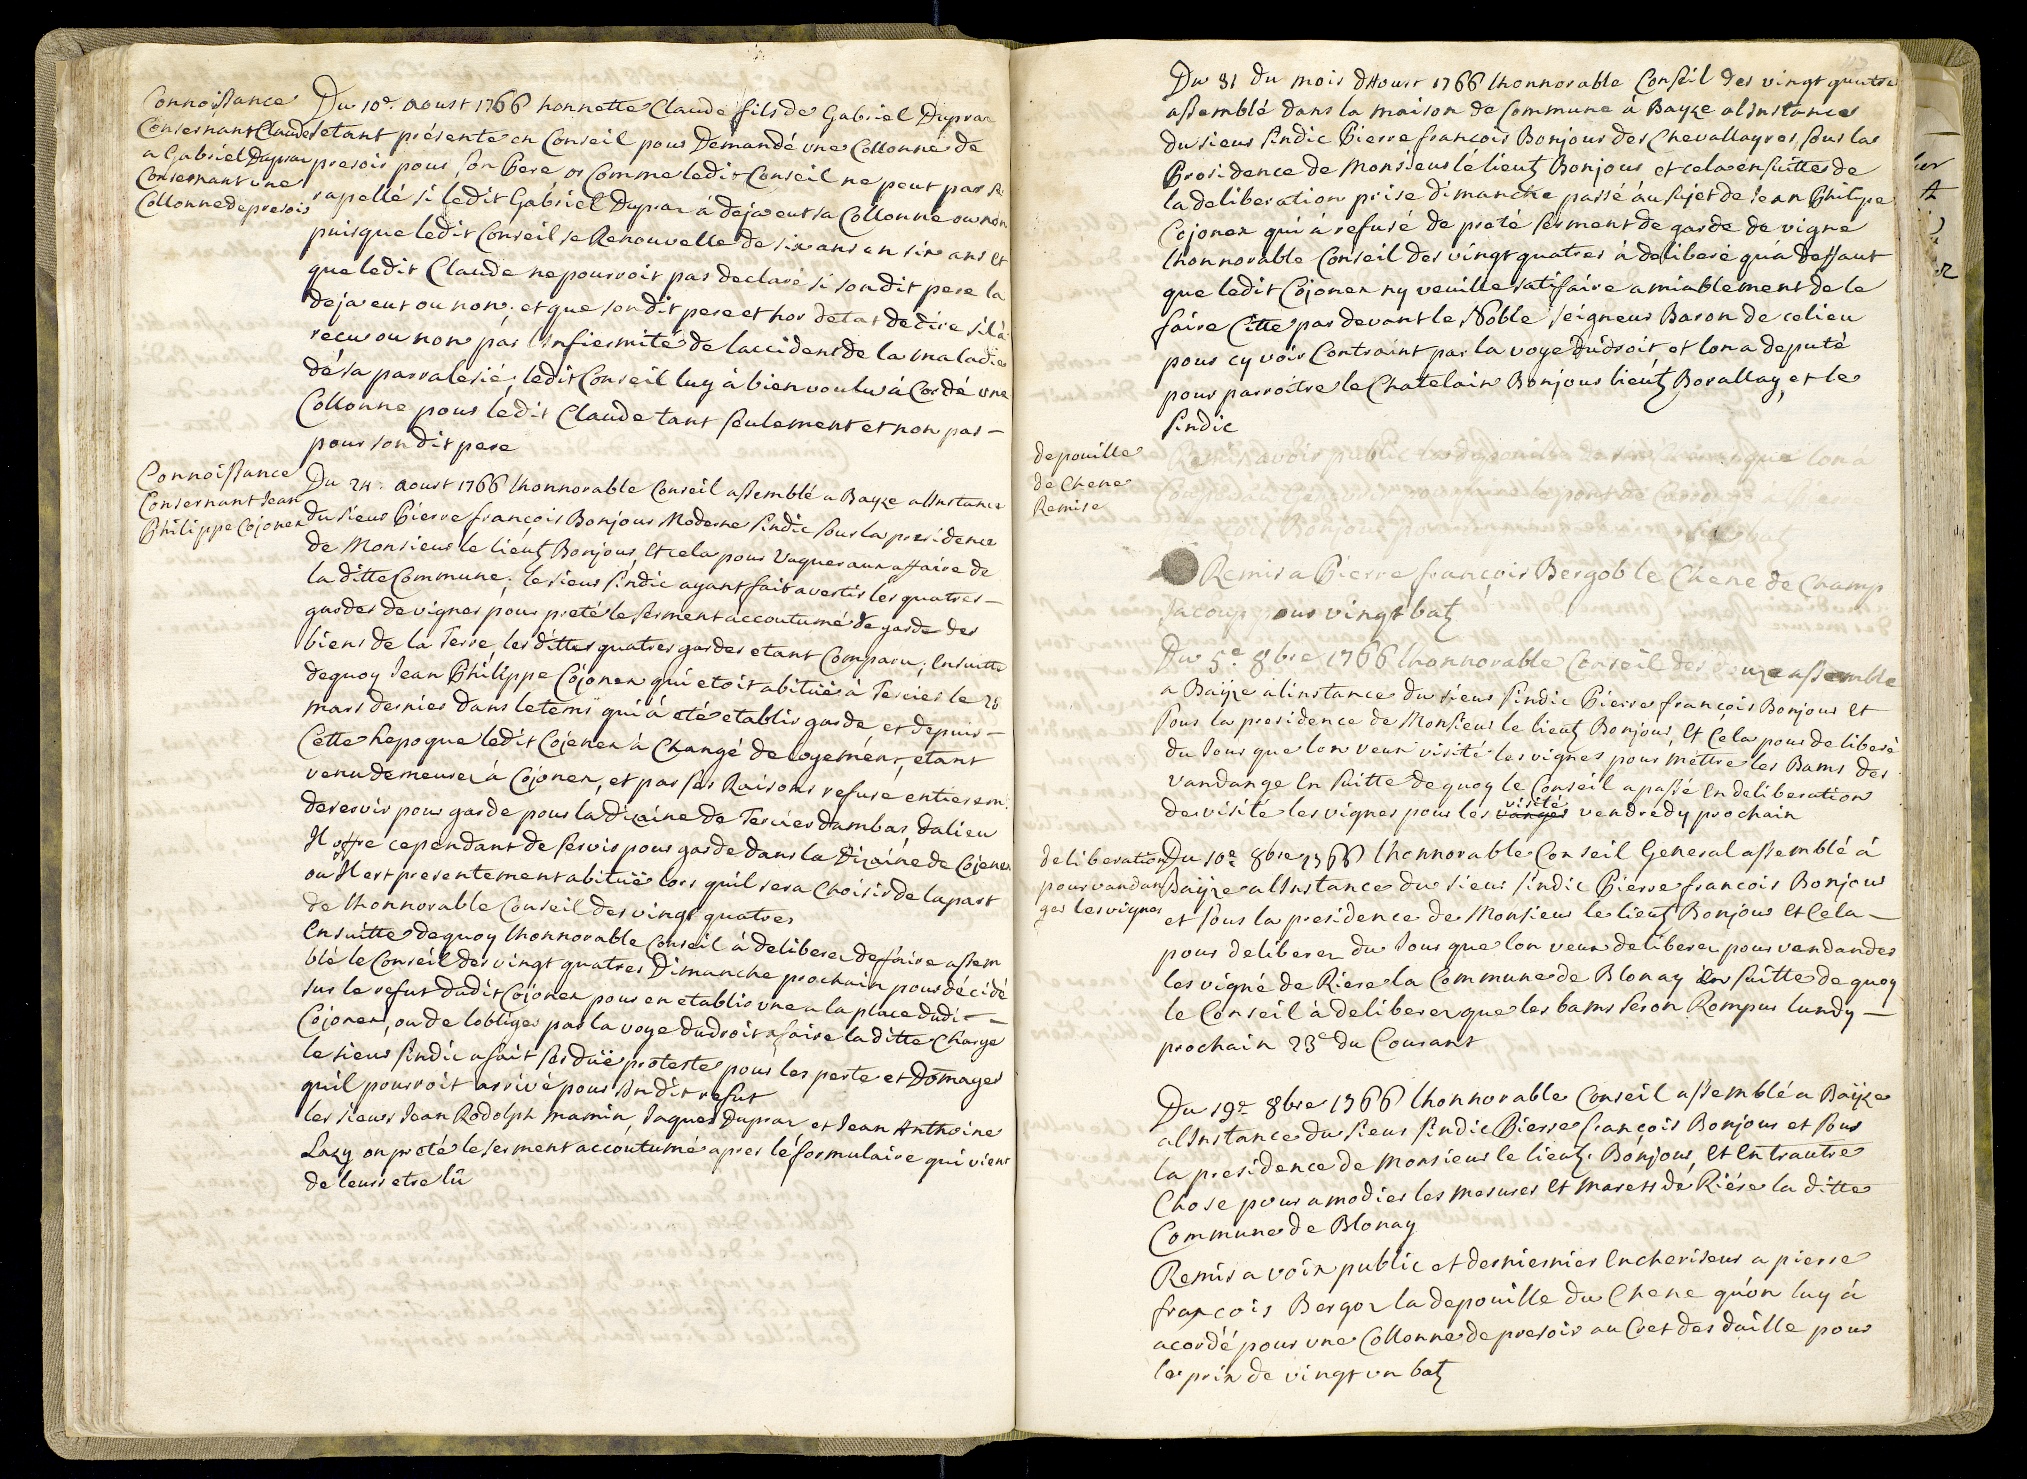 Connoissance
Consernant Claude
a Gabriel Duprax
Consernant une
Collonne de presoir
Du 10e. aoust 1766 honnette Claude fils de Gabriel Duprax
setant présenté en Conseil pour Demandé une Collonne de
presoir pour son Pere or Comme ledit Conseil ne peut pas se
rapellé si ledit Gabriel Duprax à deja eut sa Collonne ou non
puisque ledit Conseil se Renouvelle de six ans en six ans et
que ledit Claude ne pourroit pas declaré si sondit pere la
deja eut ou non, et que son dit pere et hor detat de dire sil à
recu ou non pár linfiermité de laccident de la maladie
dé sa parralesié, ledit Conseil luy à bien voulu à Cordé une
Collonne pour ledit Claude tant seulement et non pas –
pour son dit pere
Connoissance
Consernant Jean
Philippe Cojonex
Du 24. aoust 1766 lhonnorable Conseil assemblé a Bayze alinstance
du sieur Pierre francois Bonjour Moderne sindic sous la presidence
de Monsieur le lieutz Bonjour, et cela pour Vaquer aux affaire de
la ditte Commune; le sieur sindic ayant fait avertir les quatres –
gardes de vignes pour preté le serment accoutumé de garde des
biens de la Terre, les dittes quatres gardes etant Comparu; Ensuitte
dequoy Jean Philippe Cojonex qui etoit abitué à Tercier le 23
mars dernier dans le tems qui à eté etablir garde, et depuis –
Cette hepoque ledit Cojonex à Changé de logemént, etant
venu demeurer à Cojonex, et par ses Raisons refuse entierem:
de servir pour garde pour la Dizaine de Tercier dambas dalieu
Il offre cependant de servir pour garde dans la Dizaine de Cojonex
ou Il est presentement abitué lors quil sera Choisir de la part
de lhonnorable Conseil des vingt quatres
Ensuitte dequoy lhonnorable Conseil à deliberer de faire assem
blé le Conseil des vingt quatres Dimanche prochain pour décidé
sur le refus dudit Cojonex pour en etablir une a la place dudi –
Cojonex, ou de lobliger par la voye dudroit a faire la ditte Charge
le sieur sindic a fait ses duë proteste pour les perte et Domages
quil pourroit arrivé pour sondit refus
les sieur Jean Rodolph mamin, Jaques Duprax, et Jean Anthoine
Lazy on preté le serment accoutumé apres lé formulaire qui vient
de leurs etre lû
Du 31 du mois dAoust 1766 lhonnorable Conseil des vingt quatre
assemblé dans la maison de Commune à Bayze alinstance
du sieur sindic Pierre francois Bonjour des Chevallayres, sous la
Presidence de Monsieur lé lieutz Bonjour et cela ensuitte de
la deliberation prise dimanche passé áu sujet de Jean Philipe
Cojonex qui à refusé de preté serment de garde de vigne
lhonnorable Conseil des vingt quatres à deliberé quá deffaut
que ledit Cojonex ny veuille satisfaire amiablement de le
faire Citté par devant le Noble seigneur Baron de celieu
pour cy voir Contraint par la voye dudroit, et lon a deputé
pour parroitre le Chatelain Bonjour lieutz Borallay, et le
sindic
depouille
de Chene
Remise
Remis a Pierre françois Bergob le Chene de Champ
Jacoup pour vingt batz
Du 5e. 8bre 1766 lhonnorable Conseil des douze assemble
a Bayze alinstance du sieur sindic Pierre francois Bonjour et
sous la presidence de Monsieur le lieutz Bonjour, Et Cela pour deliberé
du Jour que lon veux visité les vignes pour mettre les Bams des
vandange En suitte dequoy le Conseil a passé en deliberation
de visité les vignes pour les vanges visité vendredy prochain
deliberation
pour vandan
ger les vignes
Du 10e. 8bre 1766 lhonnorablé Conseil General assemblé á
Bayze alinstance du sieur sindic Pierre francois Bonjour
et sous la presidence de Monsieur le lieutz Bonjour Et Cela –
pour deliberer du Jour que lon veux deliberer pour vendander
les vigné de Riere la Commune de Blonay Ensuitte dequoy
le Conseil à deliberer que les bams seron Rompus lundy –
prochain 23e du Courant
Du 19e 8bre 1766 lhonnorable Conseil assemblé a Bayze
alinstance du sieur sindic Pierre francois Bonjour et sous
la presidence de Monsieur le lieutz. Bonjour, Et Entrautre
Chose pour amodier les masures Et marets de Riére la ditte
Commune de Blonay
Remis a voix public et derniernier Encheriseur a pierre
francois Bergoz la depouille du Chene quón luy á
acordé pour une Collonne de presoir au Cret des daille pour
le prix de vingt un batz